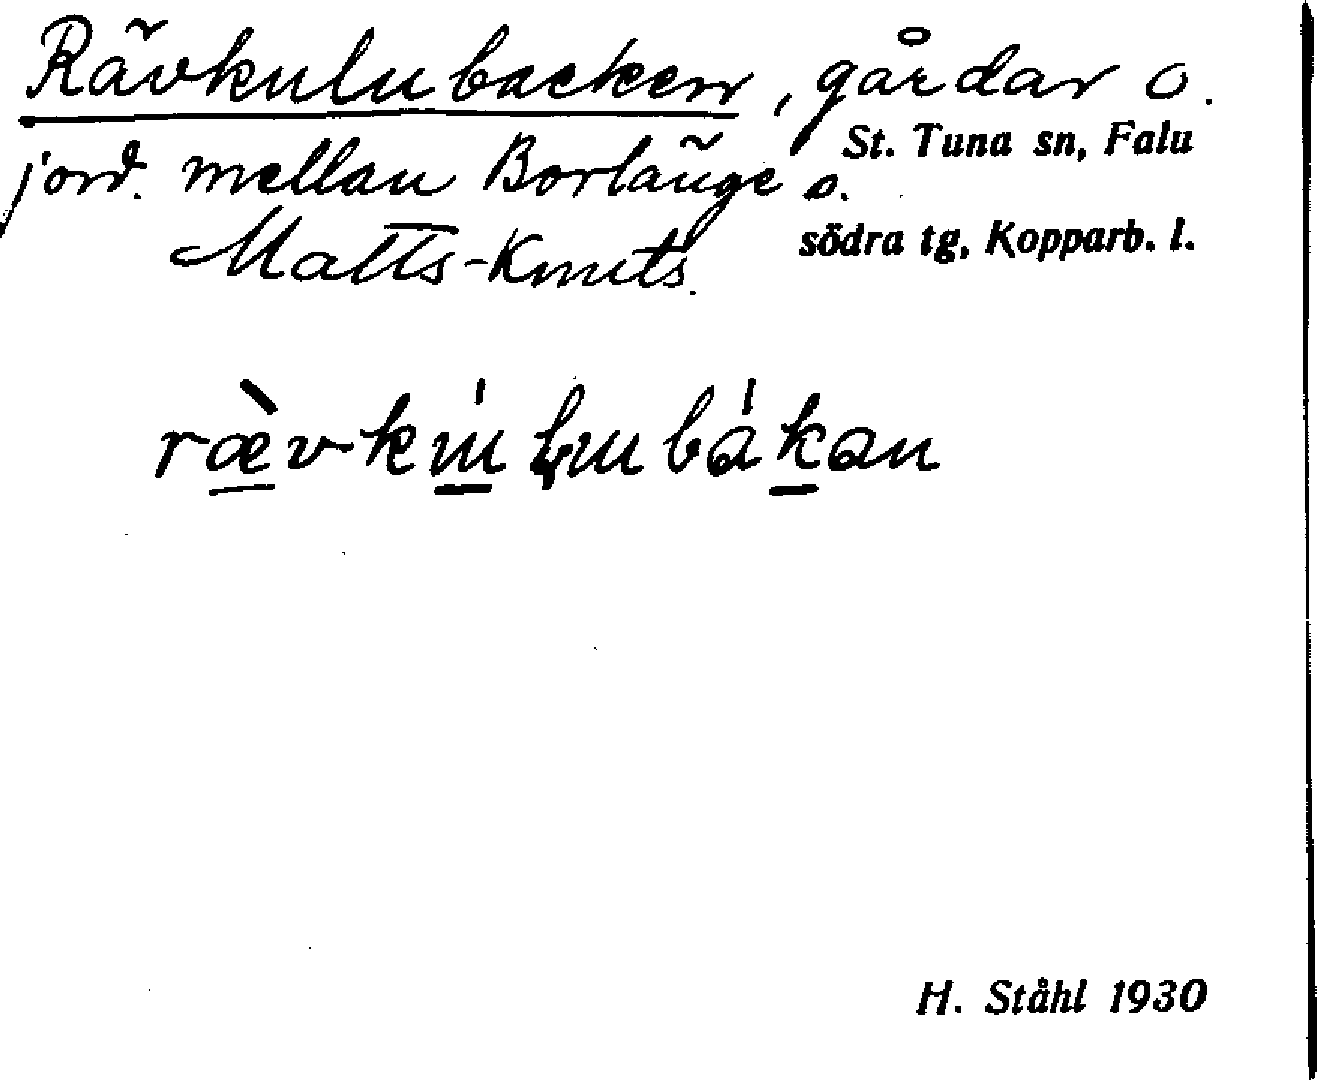 Rävkulubacken, gårdar o.
St. Tuna sn, Falu
jord. mellan Borlänge o.
södra tg, Kopparb. l.
Matts-Knuts.
H. Ståhl 1930